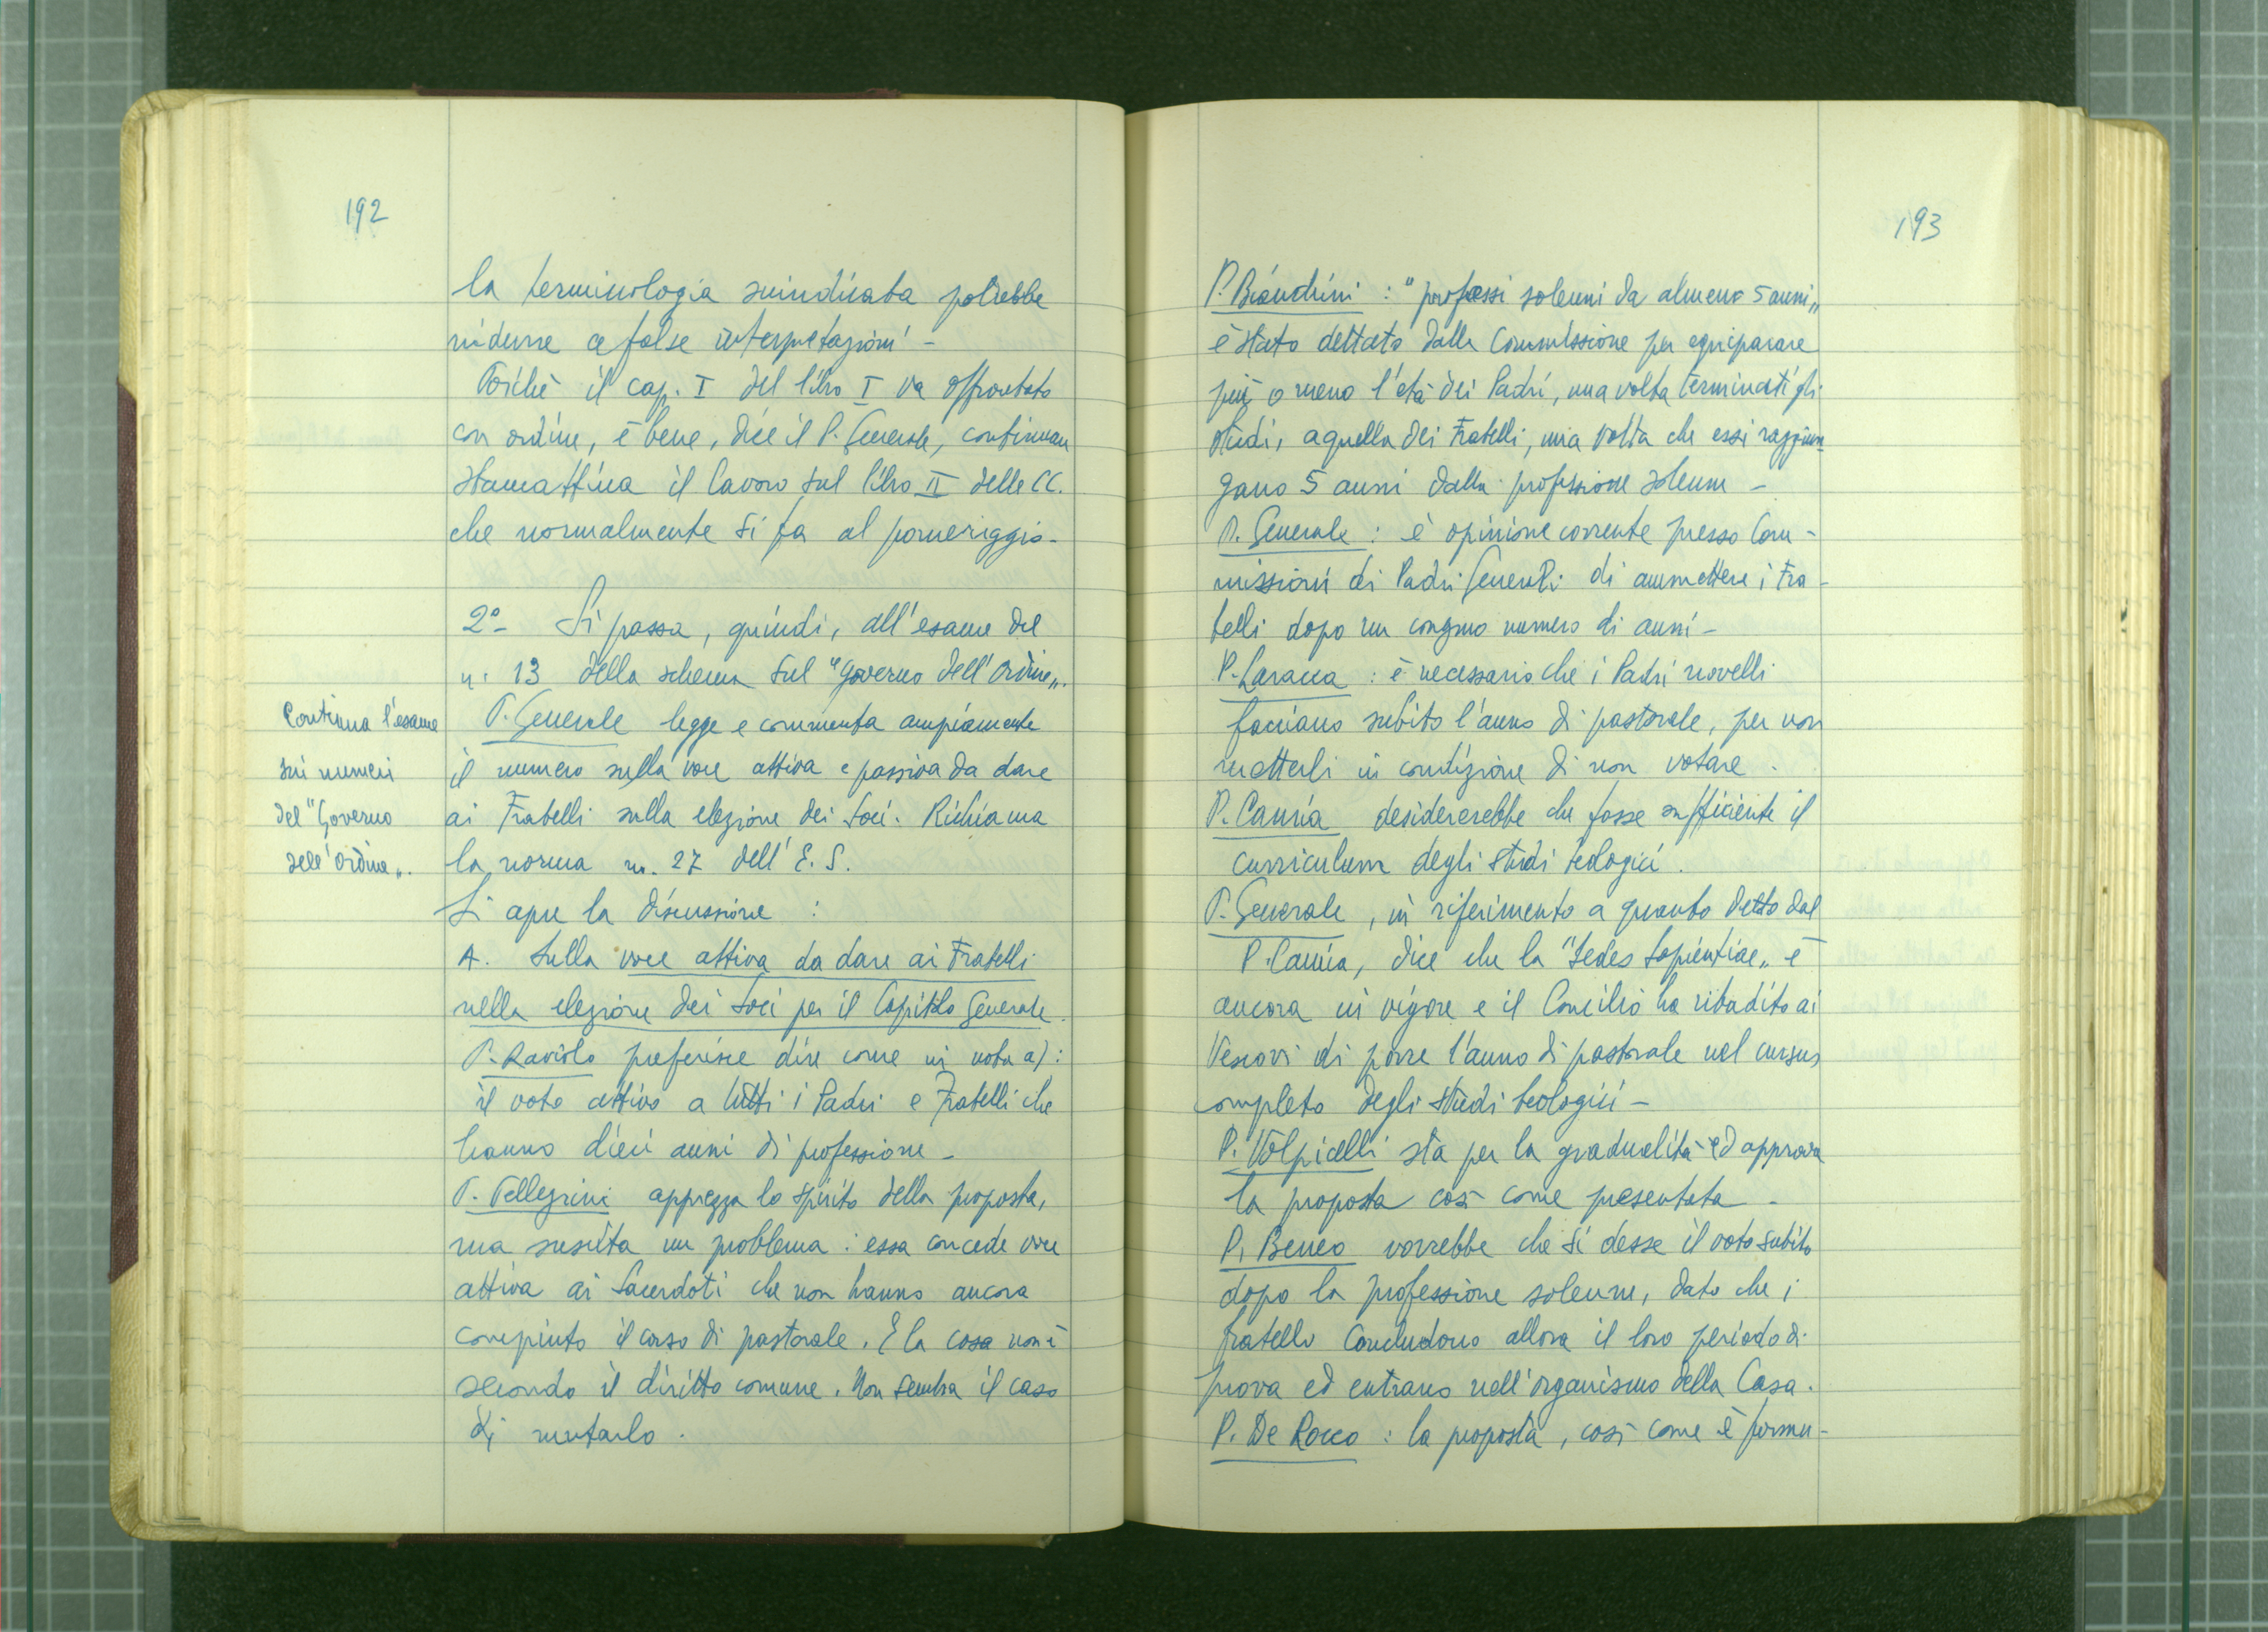 192
la terminologia suindicata potrebbe
ridurre a false interpretazioni -
Poiché il cap. I del libro I va affrontato
con ordine, è bene, dice il P. Generale, continuare
stamattina il lavoro sul libro II delle CC.
che normalmente si fa al pomeriggio -
2º - Si passa, quindi, all'esame del
n. 13 dello schema sul "governo dell'Ordine„.
Continua l'esame
sui numeri
del "Governo
dell'Ordine„.
P. Generale legge e commenta ampiamente
il numero sulla voce attiva e passiva da dare
ai Fratelli sulla elezione dei Soci. Richiama
la norma n. 27 dell'E. S.
Si apre la discussione :
A. Sulla voce attiva da dare ai Fratelli
nella elezione dei Soci per il Capitolo Generale.
P. Raviolo preferisce dire come in nota a) :
il voto attivo a tutti i Padri e Fratelli che
hanno dieci anni di professione -
P. Pellegrini apprezza lo spirito della proposta,
ma suscita un problema : essa concede voce
attiva ai Sacerdoti che non hanno ancora
compiuto il corso di pastorale. E la cosa non è
secondo il diritto comune. Non sembra il caso
di mutarlo.
193
P. Bianchini : "professi solenni da almeno 5 anni„
è stato dettato dalla Commissione per equiparare
più o meno l'età dei Padri, una volta terminati gli
studi, a quella dei Fratelli, una volta che essi raggiun-
gano 5 anni dalla professione solenne -
P. Generale : è opinione corrente presso Com-
missioni di Padri Generali di ammettere i Fra-
telli dopo un congruo numero di anni -
P. Laracca : è necessario che i Padri novelli
facciano subito l'anno di pastorale, per non
metterli in condizione di non votare.
P. Cannia desidererebbe che fosse sufficiente il
curriculum degli studi teologici.
P. Generale, in riferimento a quanto detto dal
P. Cannia, dice che la "Sedes Sapientiae„ è
ancora in vigore e il Concilio ha ribadito ai
Vescovi di porre l'anno di pastorale nel cursus
completo degli studi teologici -
P. Volpicelli sta per la gradualità ed approva
la proposta così come presentata -
P. Beneo vorrebbe che si desse il voto subito
dopo la professione solenne, dato che i
fratello concludono allora il loro periodo di
prova ed entrano nell'organismo della Casa.
P. De Rocco : la proposta, così come è formu-